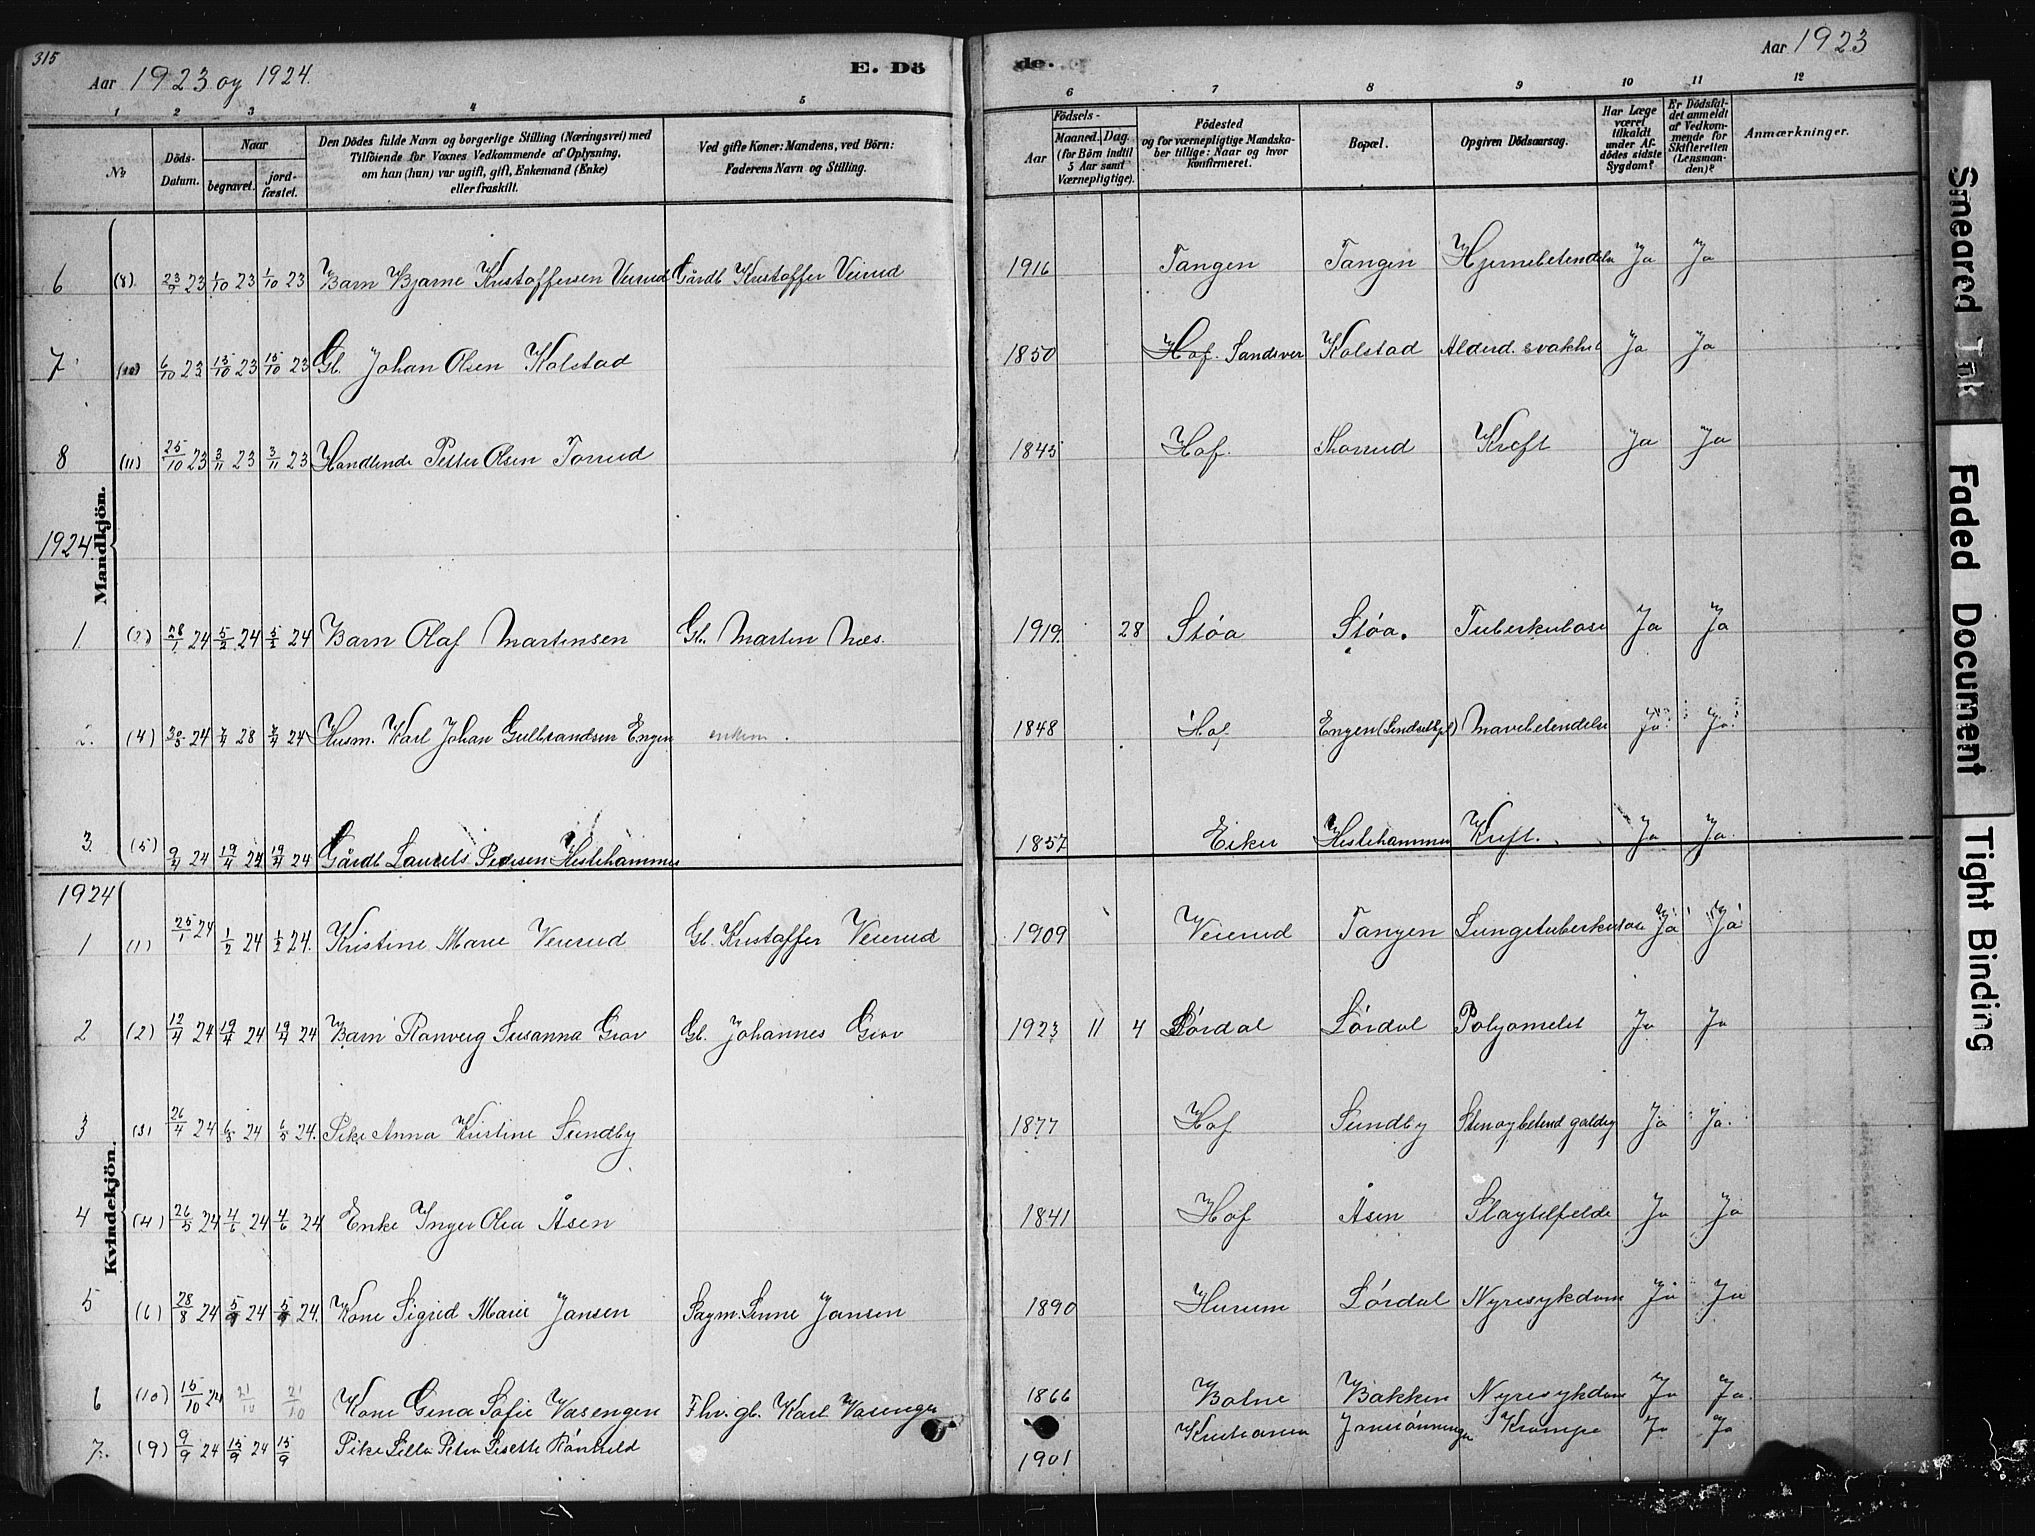 315
Aar 1923 og 1924.
E. Dö
de.
Aar 1923
1 2 3 4 5 6 7 8 9 10 11 12
No
Döds-Datum.
Naar
begravet.
jord-fæstet.
Den Dödes fulde Navn og borgerlige Stilling (Næringsvei) med
Tilföiende for Voxnes Vedkommende af Oplysning,
om han (hun) var ugift, gift, Enkemand (Enke)
eller fraskilt.
Ved gifte Koner: Mandens, ved Börn:
Faderens Navn og Stilling.
Födsels-
Aar
Maaned. Dag.
(for Börn indtil
5 Aar samt
Værnepligtige).
Födested
og for værnepligtige Mandska-
ber tillige: Naar og hvor
konfirmeret.
Bopæl.
Opgiven Dödsaarsag.
Har Læge
været
tilkaldt
under Af-
dödes sidste
Sygdom?
Er Dödsfal-
det anmeldt
af Vedkom-
mende for
Skifteretten
(Lensman-
den)?
Anmærkninger.
Mandkjön.
6 (8) 23/9 23 1/10 23 1/10 23 Barn Bjarne Kristoffersen Veirud Gårdb Kristoffer Veirud 1916 Tangen Tangen Hjernebetendelse Ja Ja
7 (10) 6/10 23 15/10 23 15/10 23 Gb. Johan Olsen Kolstad 1850 Hof. Sandsver Kolstad Alderd. svakhet Ja Ja
8 (11) 25/10 23 3/11 23 3/11 23 Handlende Petter Olsen Torrud 1845 Hof. Kreft Ja Ja
1924.
1 (2) 28/1 24 5/2 24 5/2 24 Barn Olaf Martinsen Gb. Martin Næs. 1919 28 Støa Støa. Tuberkulose Ja Ja
2. (4) 30/3 24 7/4 28 7/4 24 Husm. Karl Johan Gulbrandsen Engen enkem. 1848 Hof Engen Mavebetendelse Ja Ja
3. (5) 9/4 24 19/4 24 19/4 24 Gårdb Laurits Pedersen Hestehammer 1857 Eiker Hestehammer Kreft. Ja Ja
1924
Kvindekjön.
1 (1) 25/1 24 1/2 24 1/2 24. Kristine Marie Veierud Gb. Kristoffer Veierud 1909 Veierud Tangen Lungetuberkulose Ja Ja
2 (2) 12/4 24 19/4 24 19/4 24 Barn Ranveig Susanna Grav Gb. Johannes Grav 1923 11 4 Lørdal Lørdal Polyomelit Ja Ja
3 (3) 26/4 24 6/5 24 6/5 24. Pike Anna Kristine Sundby 1877 Hof Sundby Sten og betend galdeg Ja Ja.
4 (4) 26/5 24 4/6 24 4/6 24 Enke Inger Olea Åsen 1841 Hof Åsen Slagtilfelde Ja Ja
5 (6) 28/8 24 5/9 24 5/9 24. Kone Sigrid Marie Jansen Sagm. Jansen 1890 Hurum Lørdal Nyresykdom Ja Ja
6 (10) 15/10 24 21/10 21/10 Kone Gina Sofie Vasengen Fhv. gb. Karl Vasengen 1866 Botne Bakken Nyresykdom Ja Ja.
7. (9) 9/9 24 15/9 24 15/9 Pike Petra Lisette 1901 Kristiania Krampe Ja Ja
Smeared Ink
Faded Document
Tight Binding